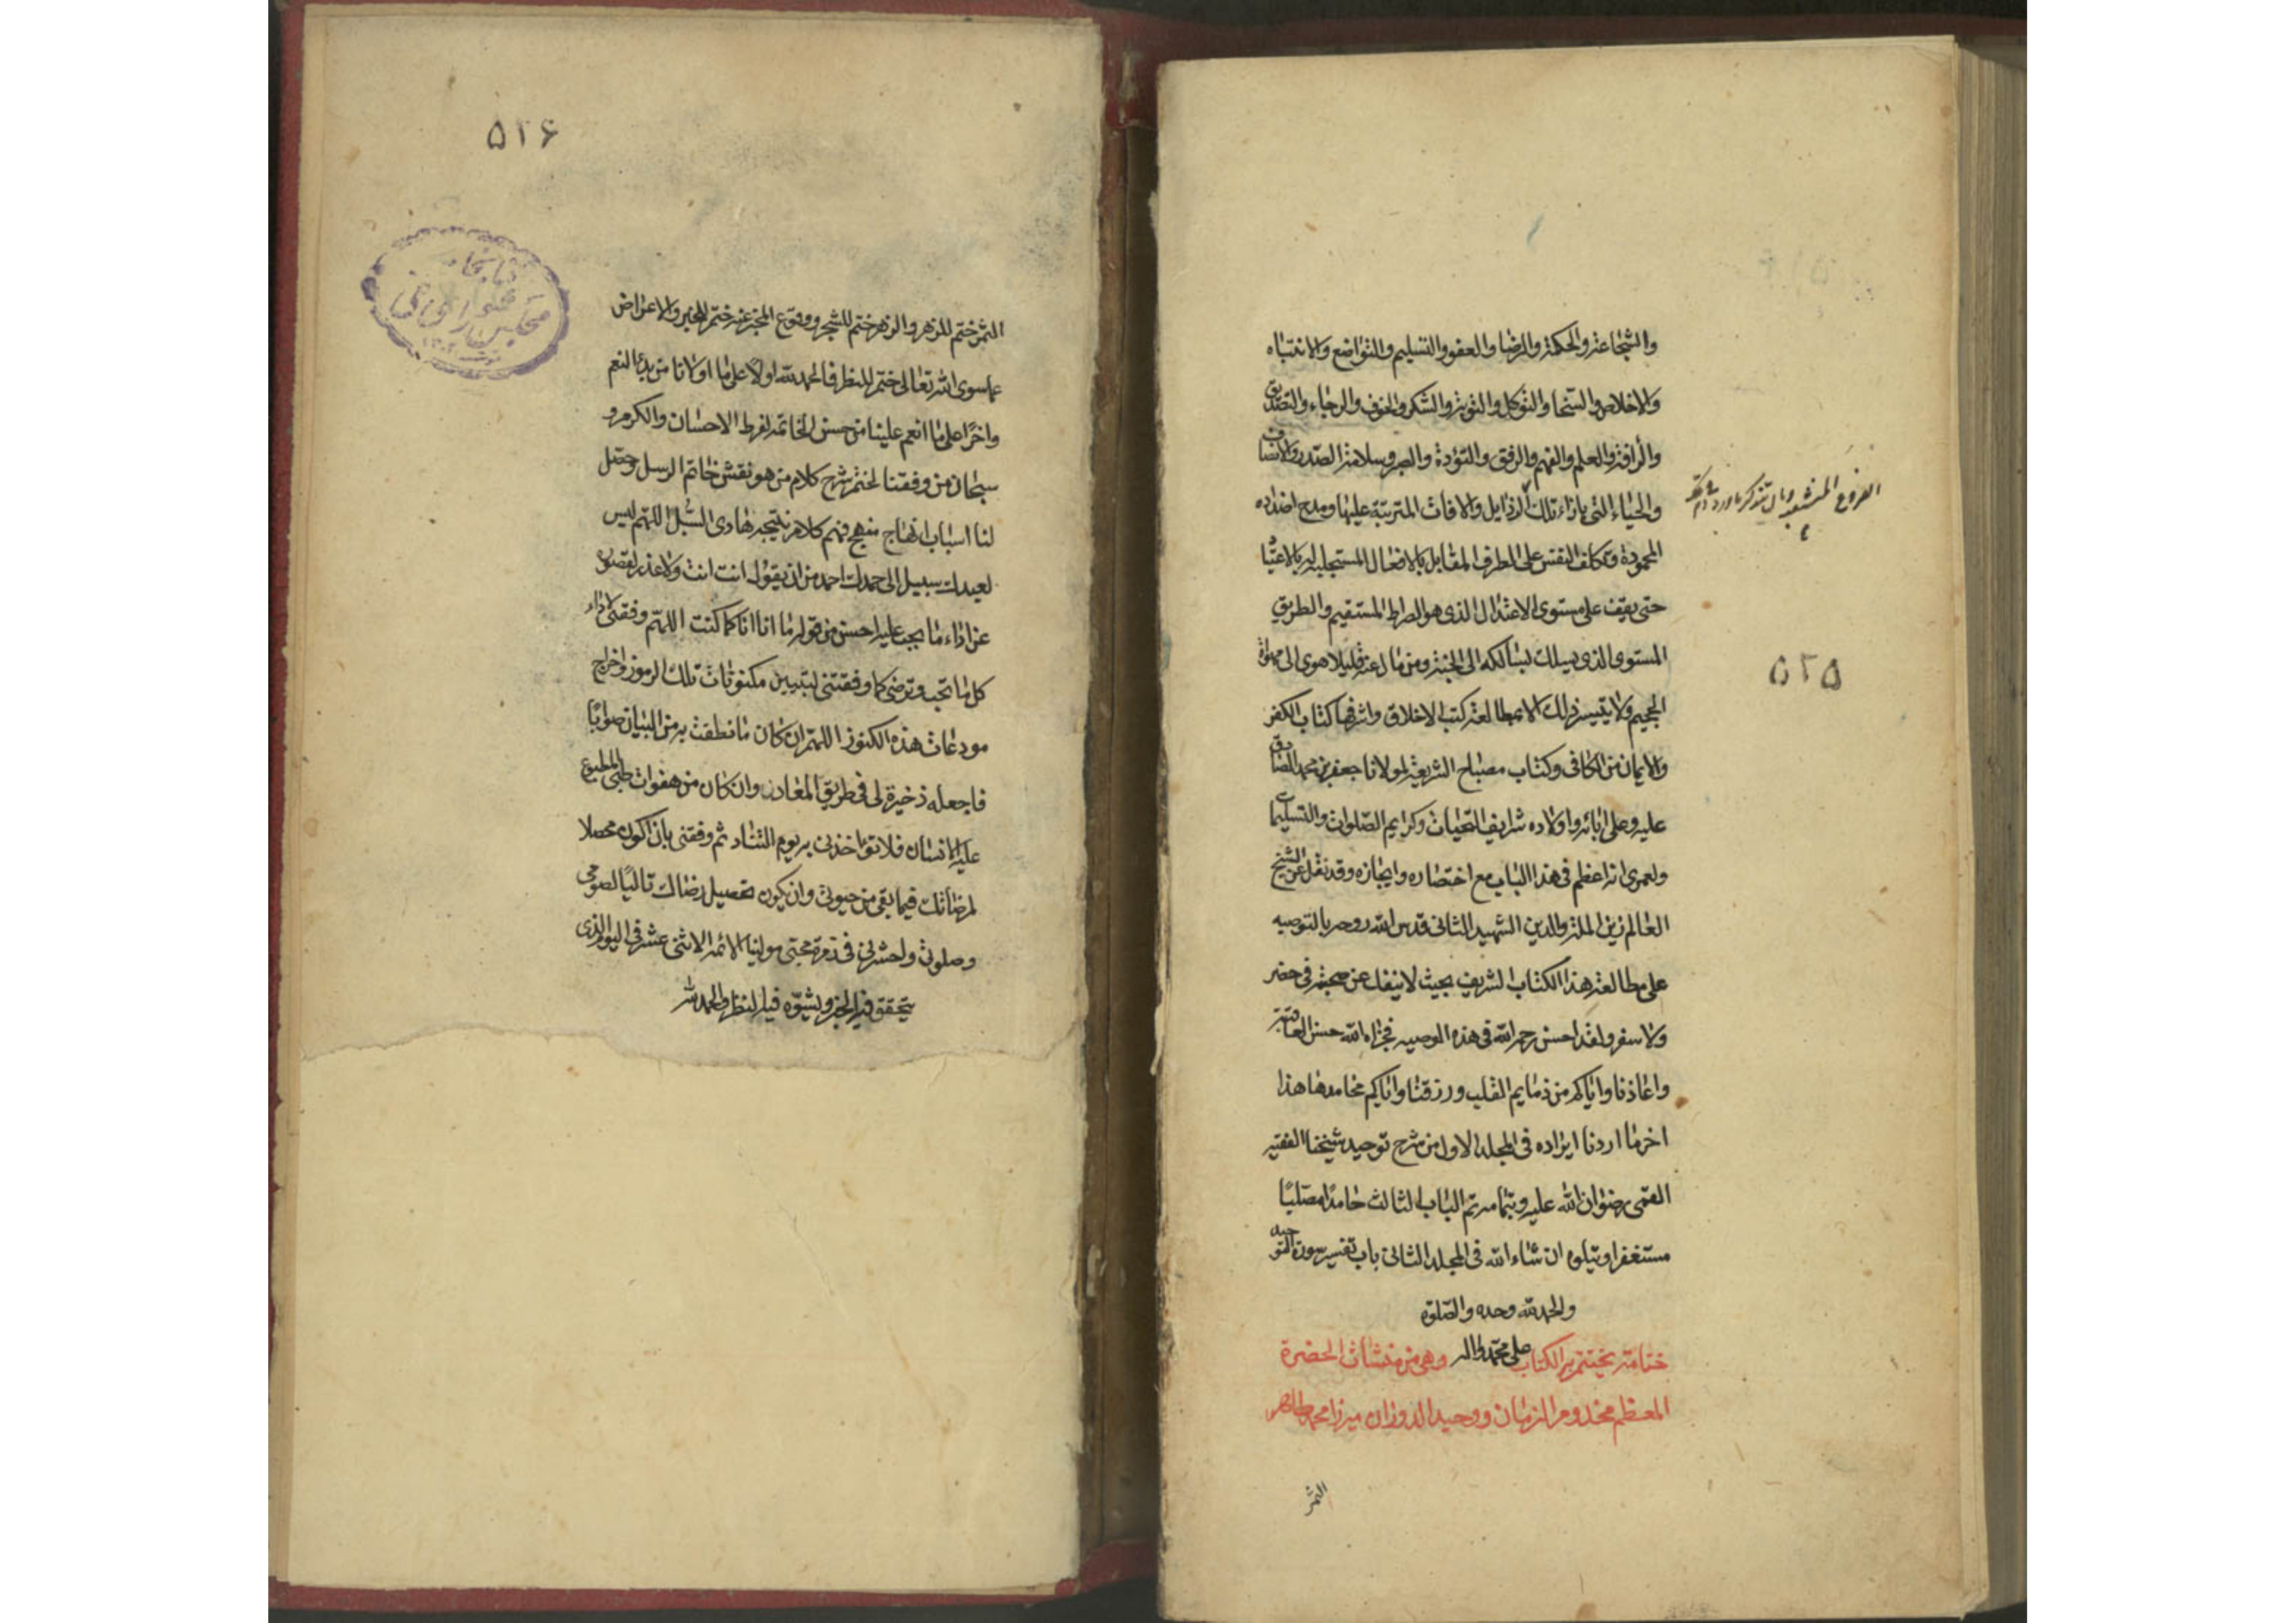 والشجاعة والحكمة والرضا والعفو والتسليم والتواضع والانتباه
والاخلاص والسخا والتوكل والتوبة والشكر والخوف والرجاء والتصديق
والرأفة والعلم والفهم والرفق والتؤدة والصبر وسلامة الصدر والانصاف
والحياء التي بازاء تلك الرذايل والافات المترتبة عليها ومدح اضداده
المحمودة وتكلف النفس على الطرف المقابل بالافعال المستجلبة له بالاعتياد
حتى يقف على مستوى الاعتدال الذي هو الصراط المستقيم والطريق
المستوى الذي يسلك لسالكه الى الجنة ومن مال عنه قليلا هوى الى مهواة
الجحيم ولا يتيسر ذلك الا بمطالعة كتب الاخلاق واشرفها كتاب الكفر
والايمان من الكافي وكتاب مصباح الشريعة لمولانا جعفر بن محمد الصادق
عليه وعلى ابائه واولاده شرايف التحيات وكرايم الصلوات والتسليمات
ولعمري انه اعظم في هذا الباب مع اختصاره وايجازه وقد نقل عن الشيخ
العالم زين الملة والدين الشهيد الثاني قدس الله روحه بالتوصيه
على مطالعة هذا الكتاب الشريف بحيث لا ينفك عن صحبته في حضر
ولا سفر ولقد احسن رحمه الله في هذه الوصيه فجزاه الله حسن العاقبة
واعاذنا واياكم من ذمايم القلب ورزقنا واياكم محامدها هذا
اخر ما اردنا ايراده في المجلد الاول من شرح توحيد شيخنا الفقيه
القمي رضوان الله عليه وبتمامه تم الباب الثالث حامدا مصليا
مستغفرا ويتلوه ان شاء الله في المجلد الثاني باب تفسير سورة التوحيد
والحمد لله وحده والصلوة
على محمد واله
ختامة يختتم به الكتاب وهي من منشآت الحضرة
المعظم مخدوم الزمان ووحيد الدوران ميرزا محمد طاهر
الثمر
الفروع المنشعبة
۵۲۵
۵۲۶
الثمر ختم للزهر والزهر ختم للشجر ووقوع المخبر عنه ختم للخبر والاعراض
عما سوى الله تعالى ختم للنظر فالحمد لله اولا على ما اولانا من بدء النعم
واخرا على ما انعم علينا من حسن الخاتمة لفرط الاحسان والكرم و
سبحان من وفقنا لختم شرح كلام من هو نقش خاتم الرسل وحصل
لنا اسباب انتهاج منهج فهم كلام نتيجة هادى السبل اللهم ليس
لعبيدك سبيل الى حمدك احمد من ان يقول انت انت ولا عذر لقصوره
عن اداء ما يجب عليه احسن من قوله ما انا انا كما كنت اللهم وفقني لاداء
كل ما تحب وترضى كما وفقتني لتبيين مكنونات تلك الرموز واخراج
مودعات هذه الكنوز اللهم ان كان ما نطقت به من البيان صوابا
فاجعله ذخيرة لي في طريق المعاد وان كان من هفوات طبعي المطبوع
عليه الانسان فلا تؤاخذني به يوم التناد ثم وفقني بان اكون محصلا
لمرضاتك فيما بقي من حيوتي وان يكون تحصيل رضاك تاليا لصومي
وصلوتي واحشرني في زمرة محبي موليا الائمة الاثنى عشر في اليوم الذي
يتحقق فيه الخبر ويشوه فيه النظر والحمد لله
كتابخانه